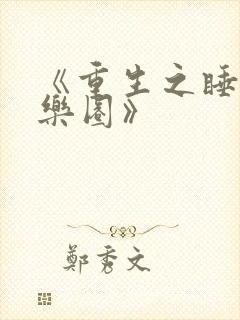 《重生之睡
樂園》
鄭秀文